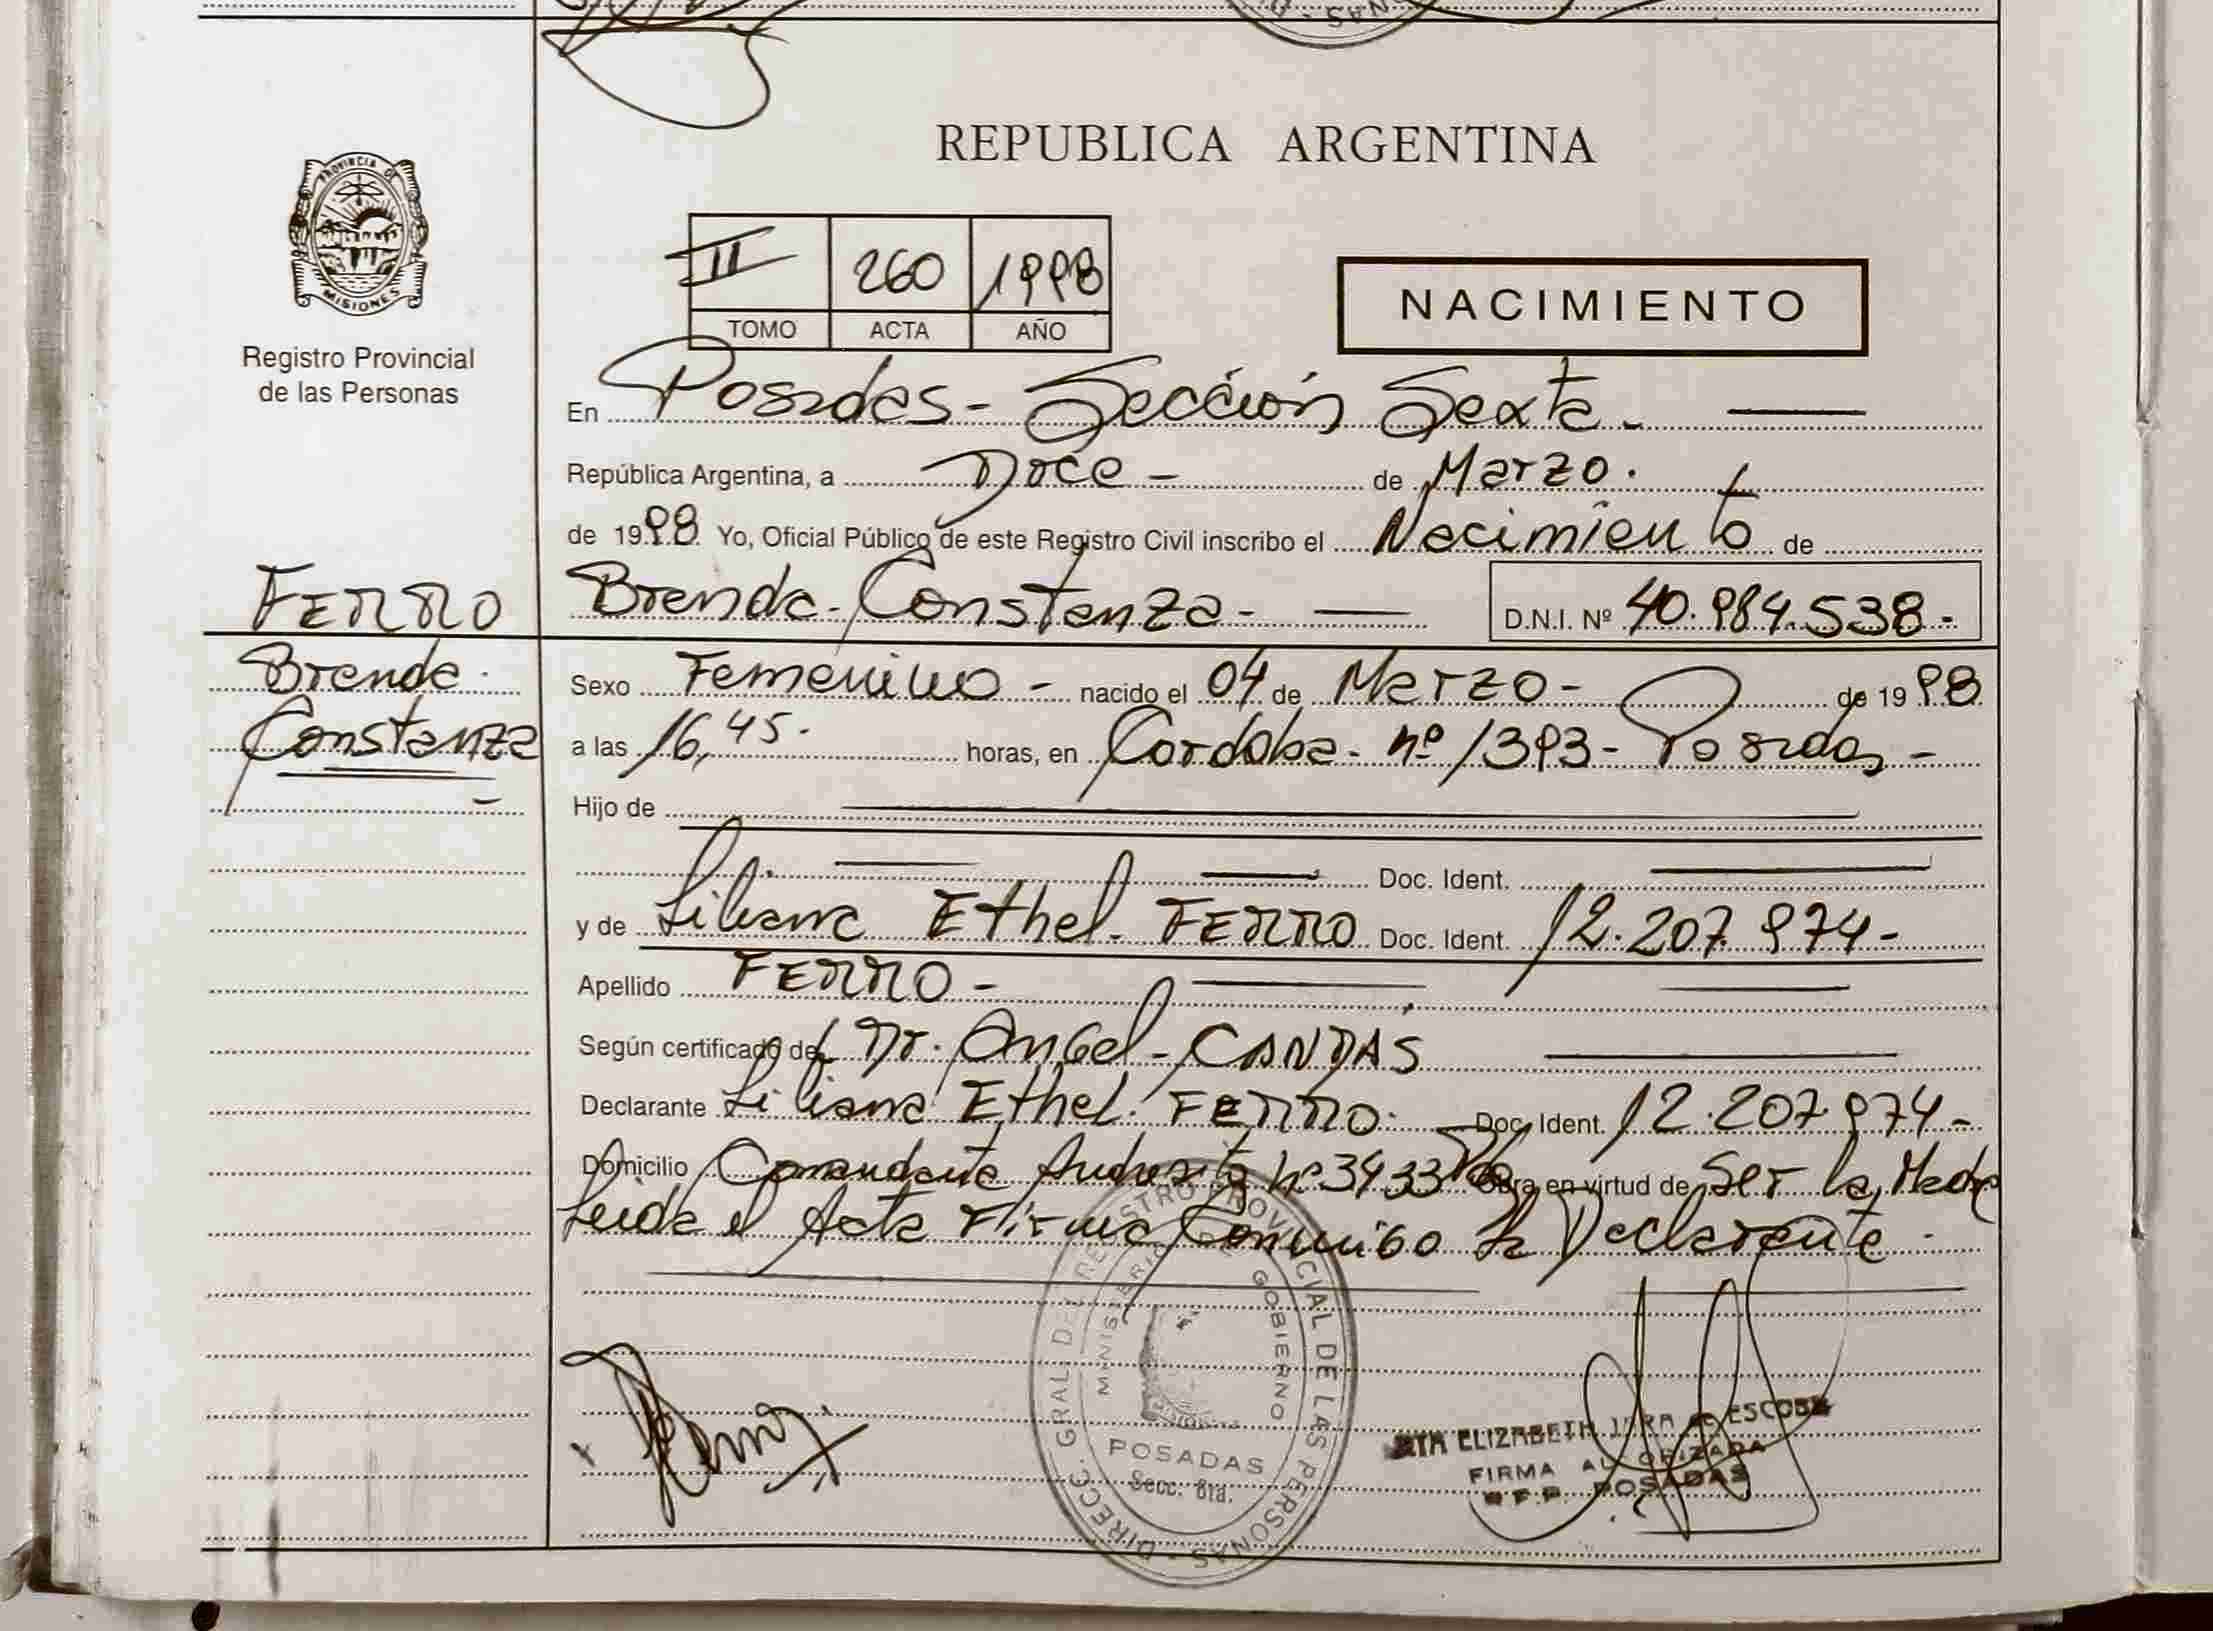 PROVINCIA DE
MISIONES
Registro Provincial
de las Personas
REPUBLICA ARGENTINA
II 260 1998
TOMO ACTA AÑO
NACIMIENTO
En Posadas - Sección Sexta -
República Argentina, a Doce - de Marzo.
de 1998 Yo, Oficial Público de este Registro Civil inscribo el Nacimiento de
FERRO
Brenda Constanza - D.N.I. Nº 40.984.538-
Brenda
Constanza
Sexo Femenino - nacido el 04 de Marzo - de 1998
a las 16,45. horas, en Cordoba - nº 1393 - Posadas -
Hijo de
Doc. Ident.
y de Liliana Ethel FERRO Doc. Ident. 12.207.974-
Apellido FERRO -
Según certificado del Dr. Angel - CANDAS
Declarante Liliana Ethel FERRO. Doc. Ident. 12.207.974-
Domicilio Comandante Andresito nº 3433 Obra en virtud de Ser la Madre
Leida el Acta Firma Conmigo la Declarante.
DIRECC. GRAL. DEL REGISTRO PROVINCIAL DE LAS PERSONAS
MINISTERIO GOBIERNO
POSADAS
Secc. 6ta.
ELIZABETH JARA de ESCOBAR
FIRMA AUTORIZADA
POSADAS